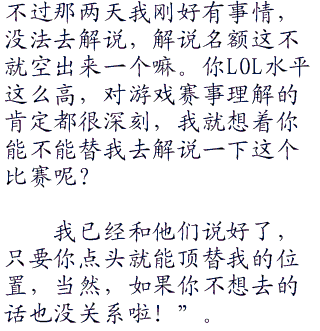 不过那两天我刚好有事情，
没法去解说，解说名额这不
就空出来一个嘛。你LOL水平
这么高，对游戏赛事理解的
肯定都很深刻，我就想着你
能不能替我去解说一下这个
比赛呢？
我已经和他们说好了，
只要你点头就能顶替我的位
置，当然，如果你不想去的
话也没关系啦！”。